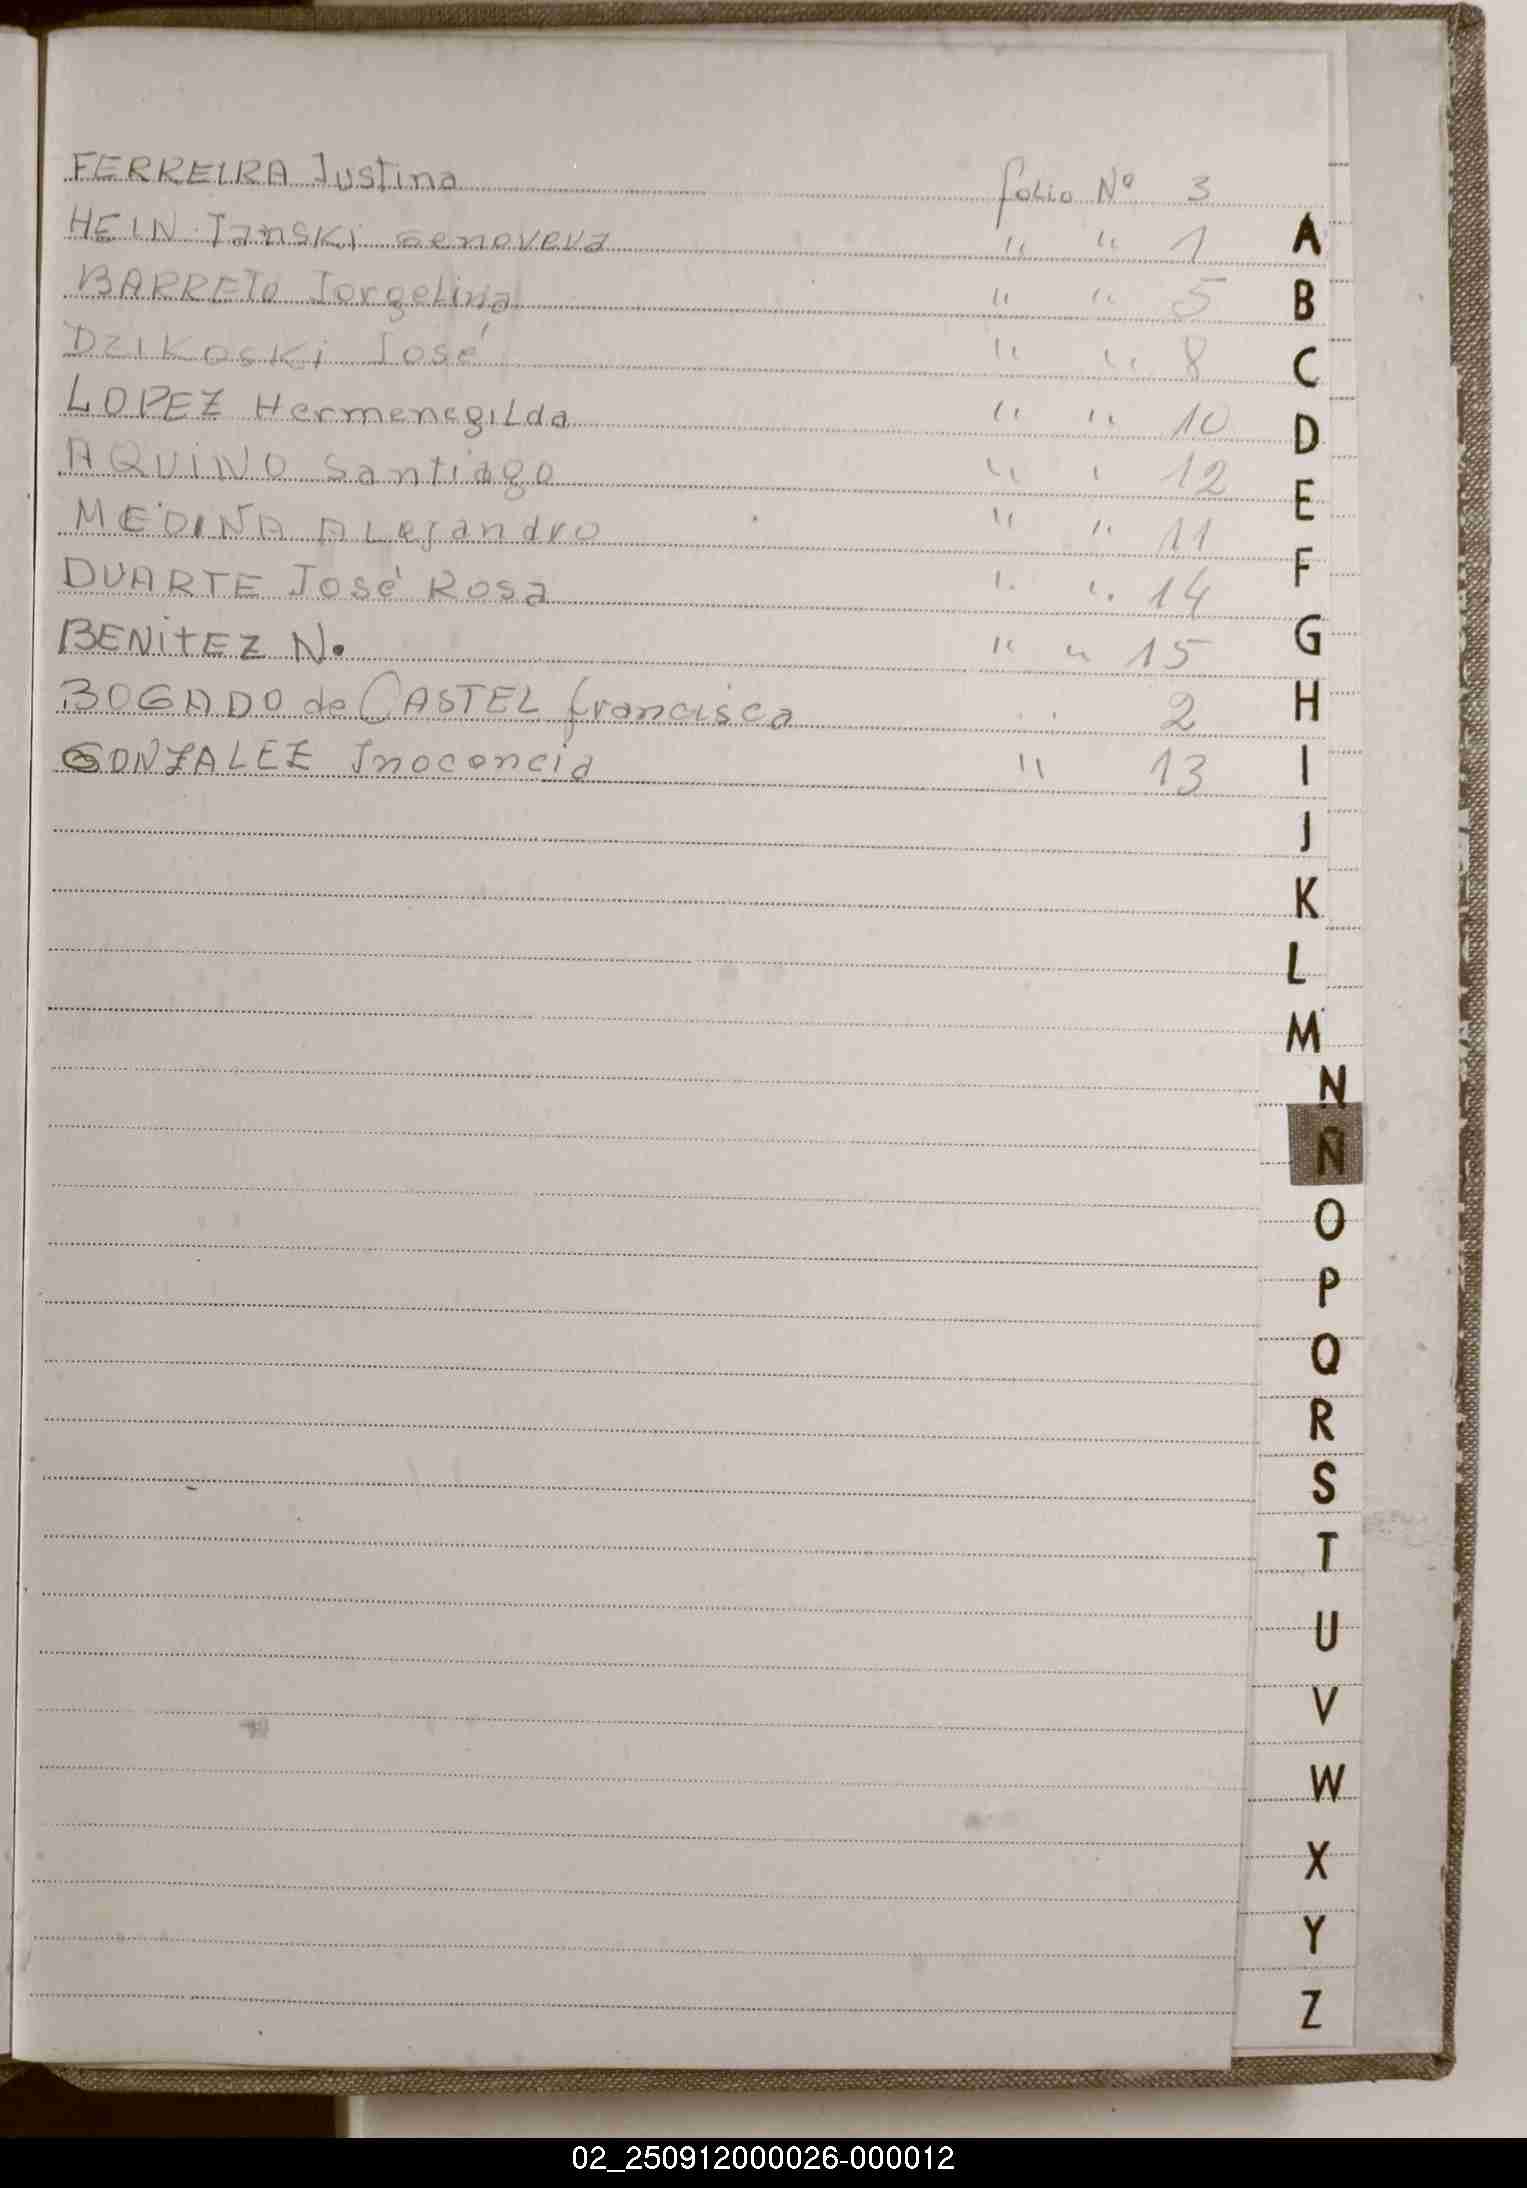 FERREIRA Justina folio Nº 3
HEIN Janski Genoveva " " 1
BARRETO Jorgelina " " 5
DZIKOSKI José " " 8
LOPEZ Hermenegilda " " 10
AQUINO Santiago " " 12
MEDINA ALejandro " " 11
DUARTE José Rosa " " 14
BENITEZ N. " " 15
BOGADO de CASTEL francisca " 2
GONZALEZ Inocencia " 13
A
B
C
D
E
F
G
H
I
J
K
L
M
N
Ñ
O
P
Q
R
S
T
U
V
W
X
Y
Z
02_250912000026-000012